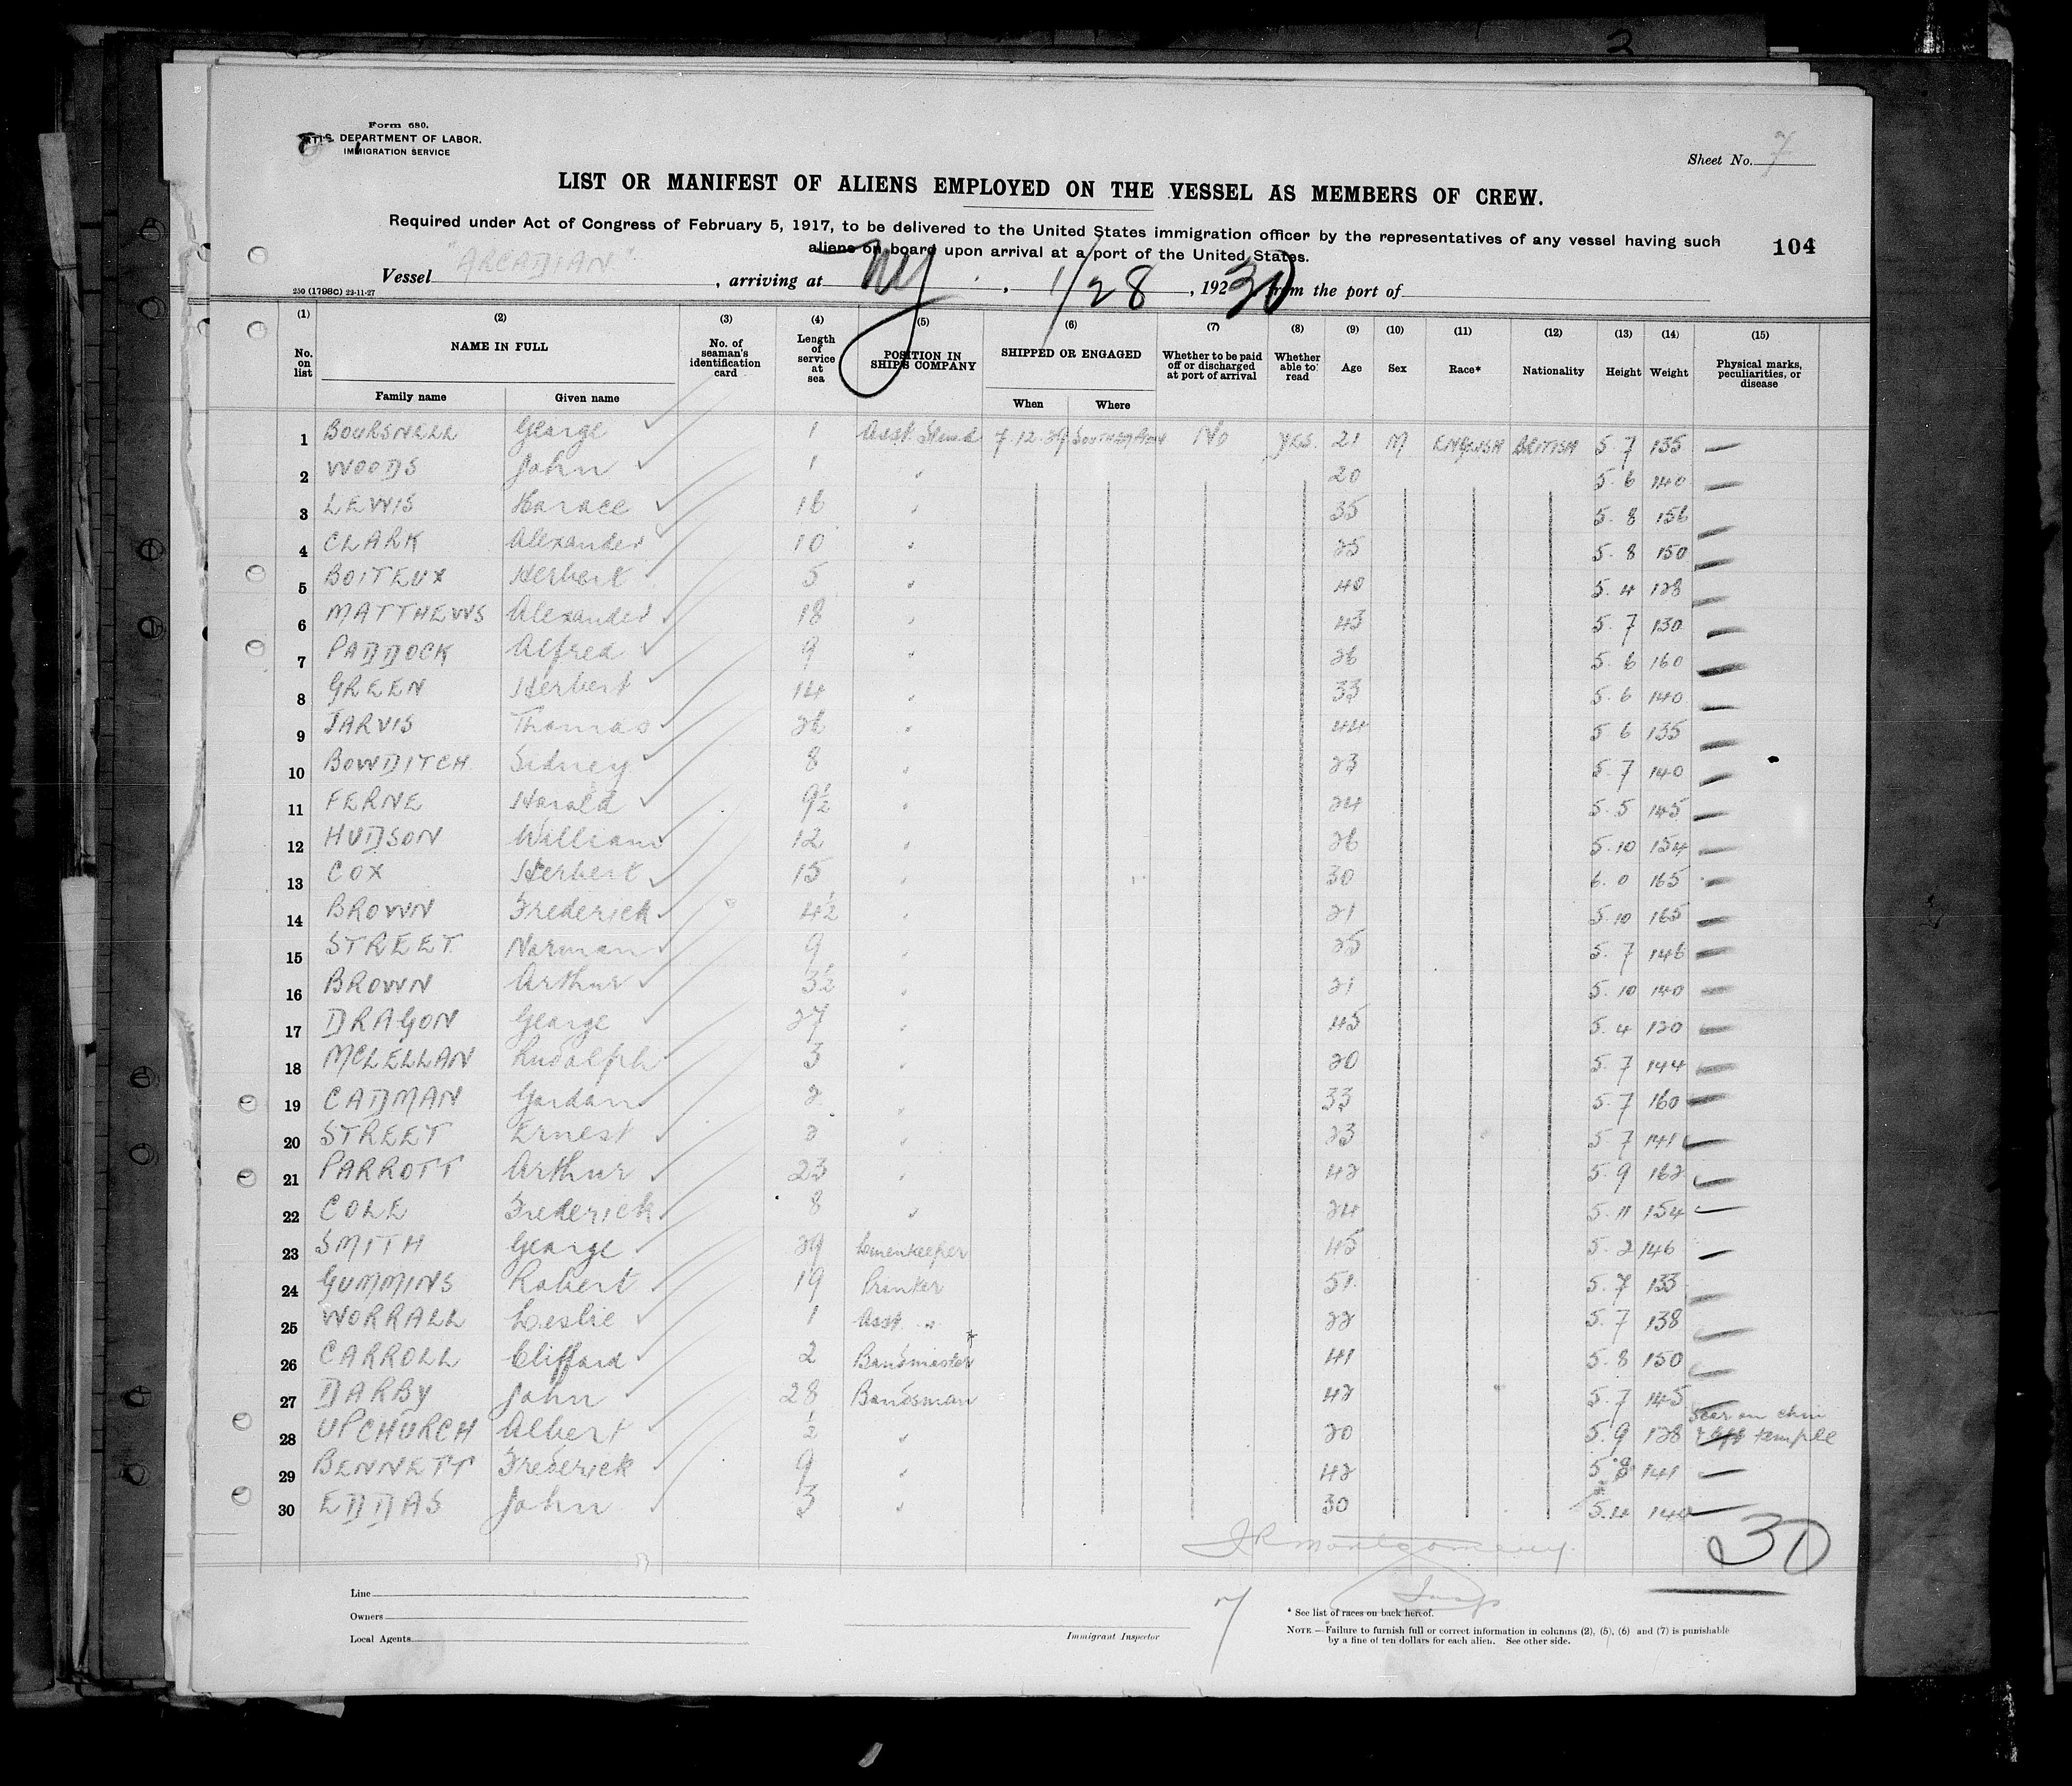 2
Form 680.
U. S. DEPARTMENT OF LABOR.
IMMIGRATION SERVICE
Sheet No. 7
LIST OR MANIFEST OF ALIENS EMPLOYED ON THE VESSEL AS MEMBERS OF CREW.
Required under Act of Congress of February 5, 1917, to be delivered to the United States immigration officer by the representatives of any vessel having such
aliens on board upon arrival at a port of the United States.
104
Vessel "ARCADIAN", arriving at NY, 1/28, 1930, from the port of
250 (1798C) 22-11-27
(1) (2) (3) (4) (5) (6) (7) (8) (9) (10) (11) (12) (13) (14) (15)
No. on list NAME IN FULL No. of seaman's identification card Length of service at sea POSITION IN SHIP'S COMPANY SHIPPED OR ENGAGED Whether to be paid off or discharged at port of arrival Whether able to read Age Sex Race* Nationality Height Weight Physical marks, peculiarities, or disease
Family name Given name When Where
1 BOURSNELL George 1 Asst. Stewd 7.12.29 Southampton No yes. 21 M ENGLISH BRITISH 5 7 135 —
2 WOODS John 1 " 20 5. 6 140 —
3 LEWIS Horace 16 " 35 5. 8 156 —
4 CLARK Alexander 10 " 25 5. 8 150 —
5 BOITEUX Herbert 5 " 40 5. 4 128 —
6 MATTHEWS Alexander 18 " 43 5. 7 130 —
7 PADDOCK Alfred 9 " 26 5. 6 160 —
8 GREEN Herbert 14 " 33 5. 6 140 —
9 JARVIS Thomas 26 " 44 5 6 135 —
10 BOWDITCH Sidney 8 " 23 5. 7 140 —
11 FERNE Harold 9½ " 24 5. 5 145 —
12 HUDSON William 12 " 26 5. 10 154 —
13 COX Herbert 15 " 30 6. 0 165 —
14 BROWN Frederick 4½ " 21 5. 10 165 —
15 STREET Norman 9 " 25 5. 7 146 —
16 BROWN Arthur 3½ " 21 5. 10 140 —
17 DRAGON George 27 " 45 5. 4 120 —
18 MCLELLAN Rudolph 3 " 20 5. 7 144 —
19 CADMAN Gordan 2 " 33 5. 7 160 —
20 STREET Ernest 2 " 23 5 7 141 —
21 PARROTT Arthur 23 " 42 5. 9 162 —
22 COLE Frederick 8 " 24 5. 11 154 —
23 SMITH George 29 Linenkeeper 45 5. 2 146 —
24 GUMMINS Robert 19 Printer 51. 5. 7 133 —
25 WORRALL Leslie 1 Asst. " 22 5. 7 138 —
26 CARROLL Clifford 2 Bandmaster 41 5. 8 150 —
27 DARBY John 28 Bandsman 42 5. 7 145 —
28 UPCHURCH Albert ½ " 20 5. 9 128 Scar on chin & left temple
29 BENNETT Frederick 9 " 42 5. 8 141 —
30 EDDAS John 3 " 30 5. 4 140 —
JR Montgomery
30
7
Line
Owners
Local Agents
Immigrant Inspector
* See list of races on back hereof.
NOTE.—Failure to furnish full or correct information in columns (2), (5), (6) and (7) is punishable
by a fine of ten dollars for each alien. See other side.